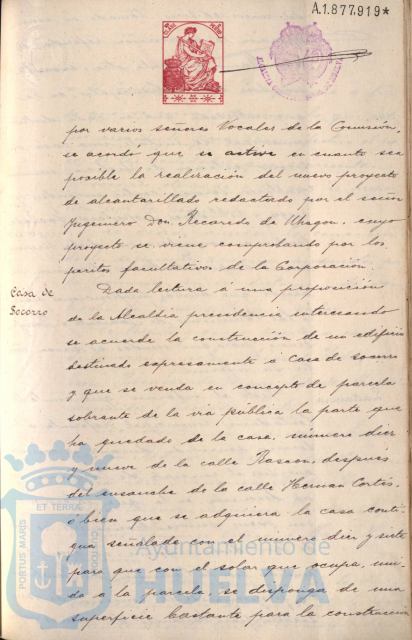 A.1.877,919*
por varios señores Vocales de la Comisión,
se acordó que se active en cuanto sea
posible la realización del nuevo proyecto
de alcantarillado redactado por el señor
Ingeniero Don Recaredo de Uhagon, cuyo
proyecto se viene comprobando por los
peritos facultativos de la Corporación.
Casa de
Socorro
Dada lectura á una proposición
de la Alcaldía presidencia interesando
se acuerde la construcción de un edificio
destinado expresamente á Casa de socorro
y que se venda en concepto de parcela
sobrante de la via pública la parte que
ha quedado de la casa, número diez
y nueve de la calle Rascon, despues
del ensanche de la calle Hernan Cortés,
o bien que se adquiera la casa conti-
gua señalada con el número diez y siete
para que con el solar que ocupa, uni-
do a la parcela, se disponga de una
superficie bastante para la construccion
PORTUS MARIS
ET TERRÆ
CUSTODIA
Ayuntamiento de
HUELVA